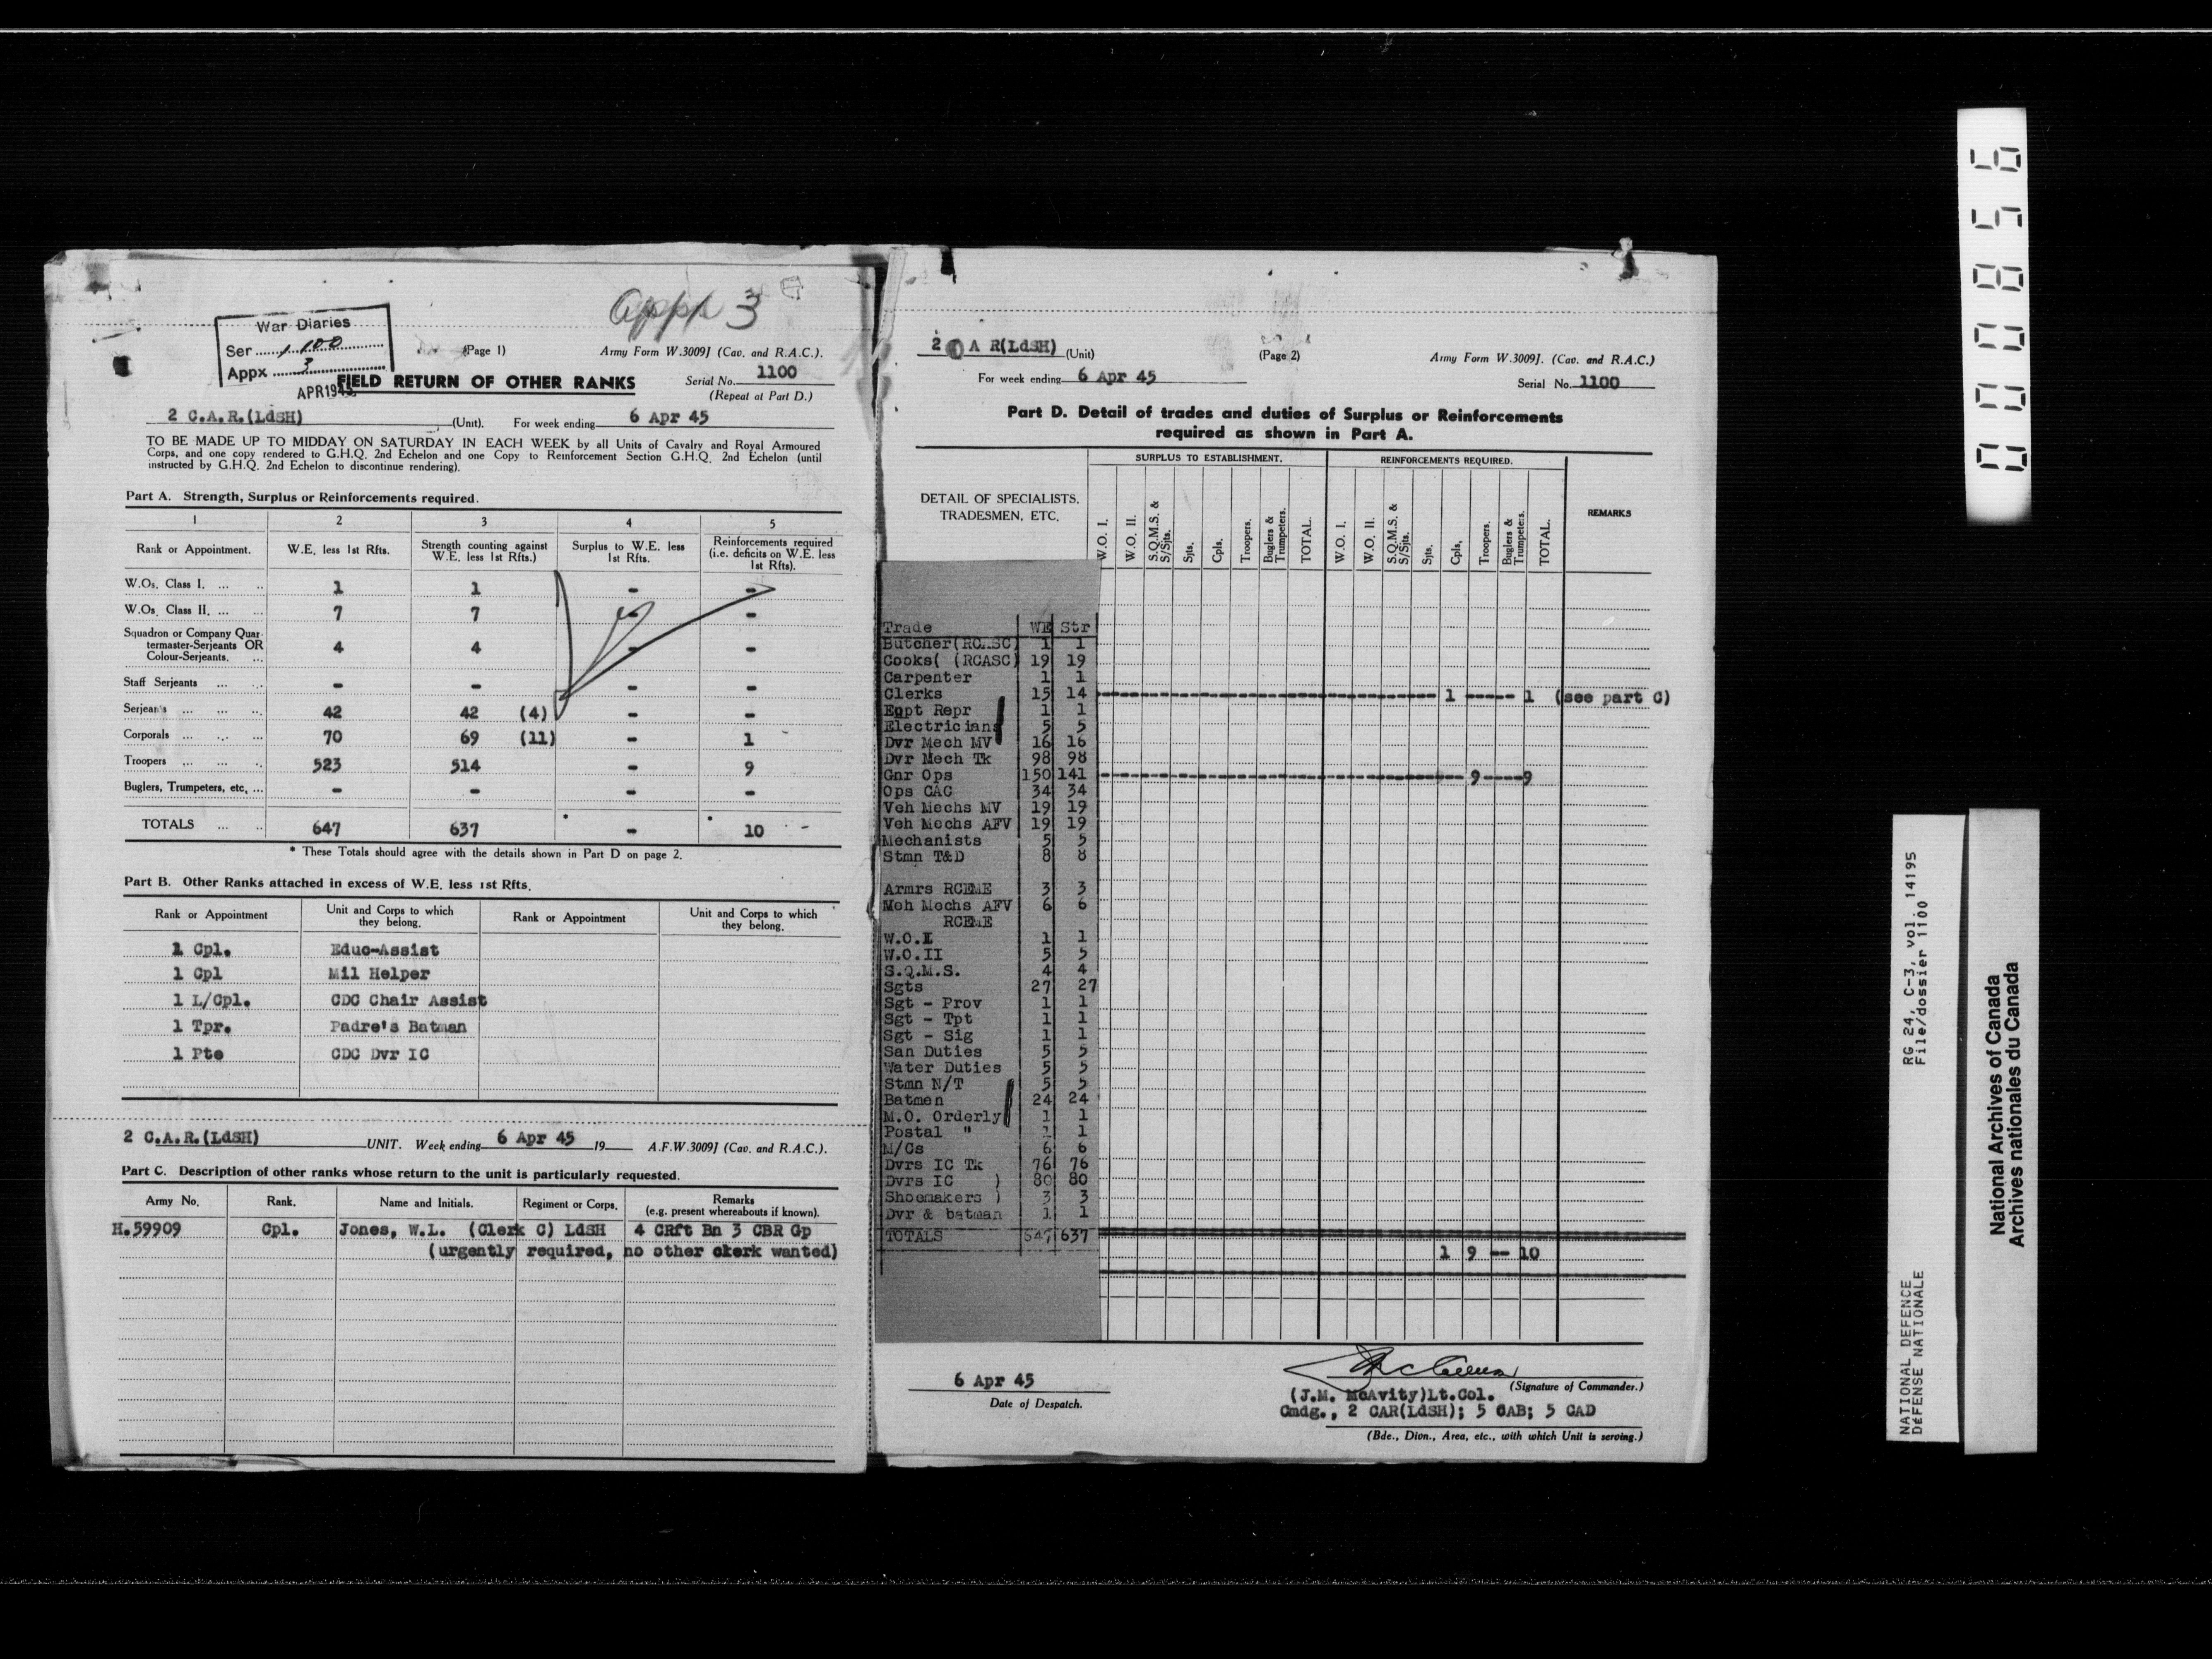 Appx 3
War Diaries
Ser 1100
Appx 3
APR 194
(Page 1)
Army Form W.3009J (Cav. and R.A.C.).
FIELD RETURN OF OTHER RANKS
Serial No. 1100
(Repeat at Part D.)
2 C.A.R.(LdSH) (Unit). For week ending 6 Apr 45
TO BE MADE UP TO MIDDAY ON SATURDAY IN EACH WEEK by all Units of Cavalry and Royal Armoured
Corps, and one copy rendered to G.H.Q. 2nd Echelon and one Copy to Reinforcement Section G.H.Q. 2nd Echelon (until
instructed by G.H.Q. 2nd Echelon to discontinue rendering).
Part A. Strength, Surplus or Reinforcements required.
1 2 3 4 5
Rank or Appointment. W.E. less 1st Rfts. Strength counting against W.E. less 1st Rfts.) Surplus to W.E. less 1st Rfts. Reinforcements required (i.e. deficits on W.E. less 1st Rfts).
W.Os. Class I. ... .. 1 1 - -
W.Os. Class II. ... ... 7 7 - -
Squadron or Company Quar-
termaster-Serjeants OR
Colour-Serjeants. ... 4 4 - -
Staff Serjeants ... ... - - - -
Serjeants ... ... ... 42 42 (4) - -
Corporals ... ... ... 70 69 (11) - 1
Troopers ... ... .. 523 514 - 9
Buglers, Trumpeters, etc, ... - - - -
TOTALS ... .. 647 637 * - * 10 -
* These Totals should agree with the details shown in Part D on page 2.
Part B. Other Ranks attached in excess of W.E. less 1st Rfts.
Rank or Appointment Unit and Corps to which they belong. Rank or Appointment Unit and Corps to which they belong.
1 Cpl. Educ-Assist
1 Cpl Mil Helper
1 L/Cpl. CDC Chair Assist
1 Tpr. Padre's Batman
1 Pte CDC Dvr IC
2 C.A.R.(LdSH) UNIT. Week ending 6 Apr 45 19 A.F.W.3009J (Cav. and R.A.C.).
Part C. Description of other ranks whose return to the unit is particularly requested.
Army No. Rank. Name and Initials. Regiment or Corps. Remarks (e.g. present whereabouts if known).
H.59909 Cpl. Jones, W.L. (Clerk C) LdSH 4 CRft Bn 3 CBR Gp
(urgently required, no other clerk wanted)
2 C A R(LdSH) (Unit)
(Page 2)
Army Form W.3009J. (Cav. and R.A.C.)
For week ending 6 Apr 45
Serial No. 1100
Part D. Detail of trades and duties of Surplus or Reinforcements
required as shown in Part A.
DETAIL OF SPECIALISTS,
TRADESMEN, ETC.
SURPLUS TO ESTABLISHMENT. REINFORCEMENTS REQUIRED. REMARKS
W.O. I. W.O. II. S.Q.M.S. & S/Sjts. Sjts. Cpls. Troopers. Buglers & Trumpeters. TOTAL. W.O. I. W.O. II. S.Q.M.S. & S/Sjts. Sjts. Cpls. Troopers. Buglers & Trumpeters. TOTAL.
Trade WE Str
Butcher(RCASC) 1 1
Cooks( (RCASC) 19 19
Carpenter 1 1
Clerks 15 14 1 1 (see part C)
Eqpt Repr 1 1
Electricians 5 5
Dvr Mech MV 16 16
Dvr Mech Tk 98 98
Gnr Ops 150 141 9 9
Ops CAC 34 34
Veh Mechs MV 19 19
Veh Mechs AFV 19 19
Mechanists 5 5
Stmn T&D 8 8
Armrs RCEME 3 3
Meh Mechs AFV 6 6
RCEME
W.O.I 1 1
W.O.II 5 5
S.Q.M.S. 4 4
Sgts 27 27
Sgt - Prov 1 1
Sgt - Tpt 1 1
Sgt - Sig 1 1
San Duties 5 5
Water Duties 5 5
Stmn N/T 5 5
Batmen 24 24
M.O. Orderly 1 1
Postal " 1 1
M/Cs 6 6
Dvrs IC Tk 76 76
Dvrs IC ) 80 80
Shoemakers ) 3 3
Dvr & batman 1 1
TOTALS 647 637
1 9 -- 10
6 Apr 45
Date of Despatch.
(Signature of Commander.)
(J.M. McAvity)Lt.Col.
Cmdg., 2 CAR(LdSH); 5 CAB; 5 CAD
(Bde., Dion., Area, etc., with which Unit is serving.)
000856
NATIONAL DEFENCE RG 24, C-3, vol. 14195
DéFENSE NATIONALE File/dossier 1100
National Archives of Canada
Archives nationales du Canada